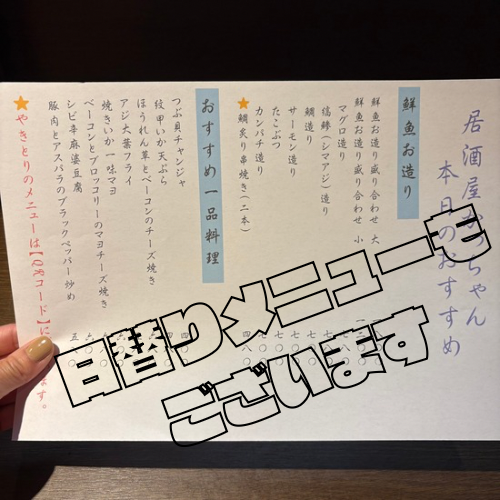 居酒屋かっちゃん
本日のおすすめ
鮮魚お造り
鮮魚お造り盛り合わせ 大
鮮魚お造り盛り合わせ 小
マグロ造り
縞鯵(シマアジ)造り
鯛造り
サーモン造り
たこぶつ
カンパチ造り
★鯛炙り串焼き(二本)
おすすめ一品料理
つぶ貝チャンジャ
紋甲いか天ぷら
ほうれん草とベーコンのチーズ焼き
アジ大葉フライ
焼きいか一味マヨ
ベーコンとブロッコリーのマヨチーズ焼き
シビ辛麻婆豆腐
豚肉とアスパラのブラックペッパー炒め
★やきとりのメニューは【QRコード】に
ます。
日替りメニューも
ございます